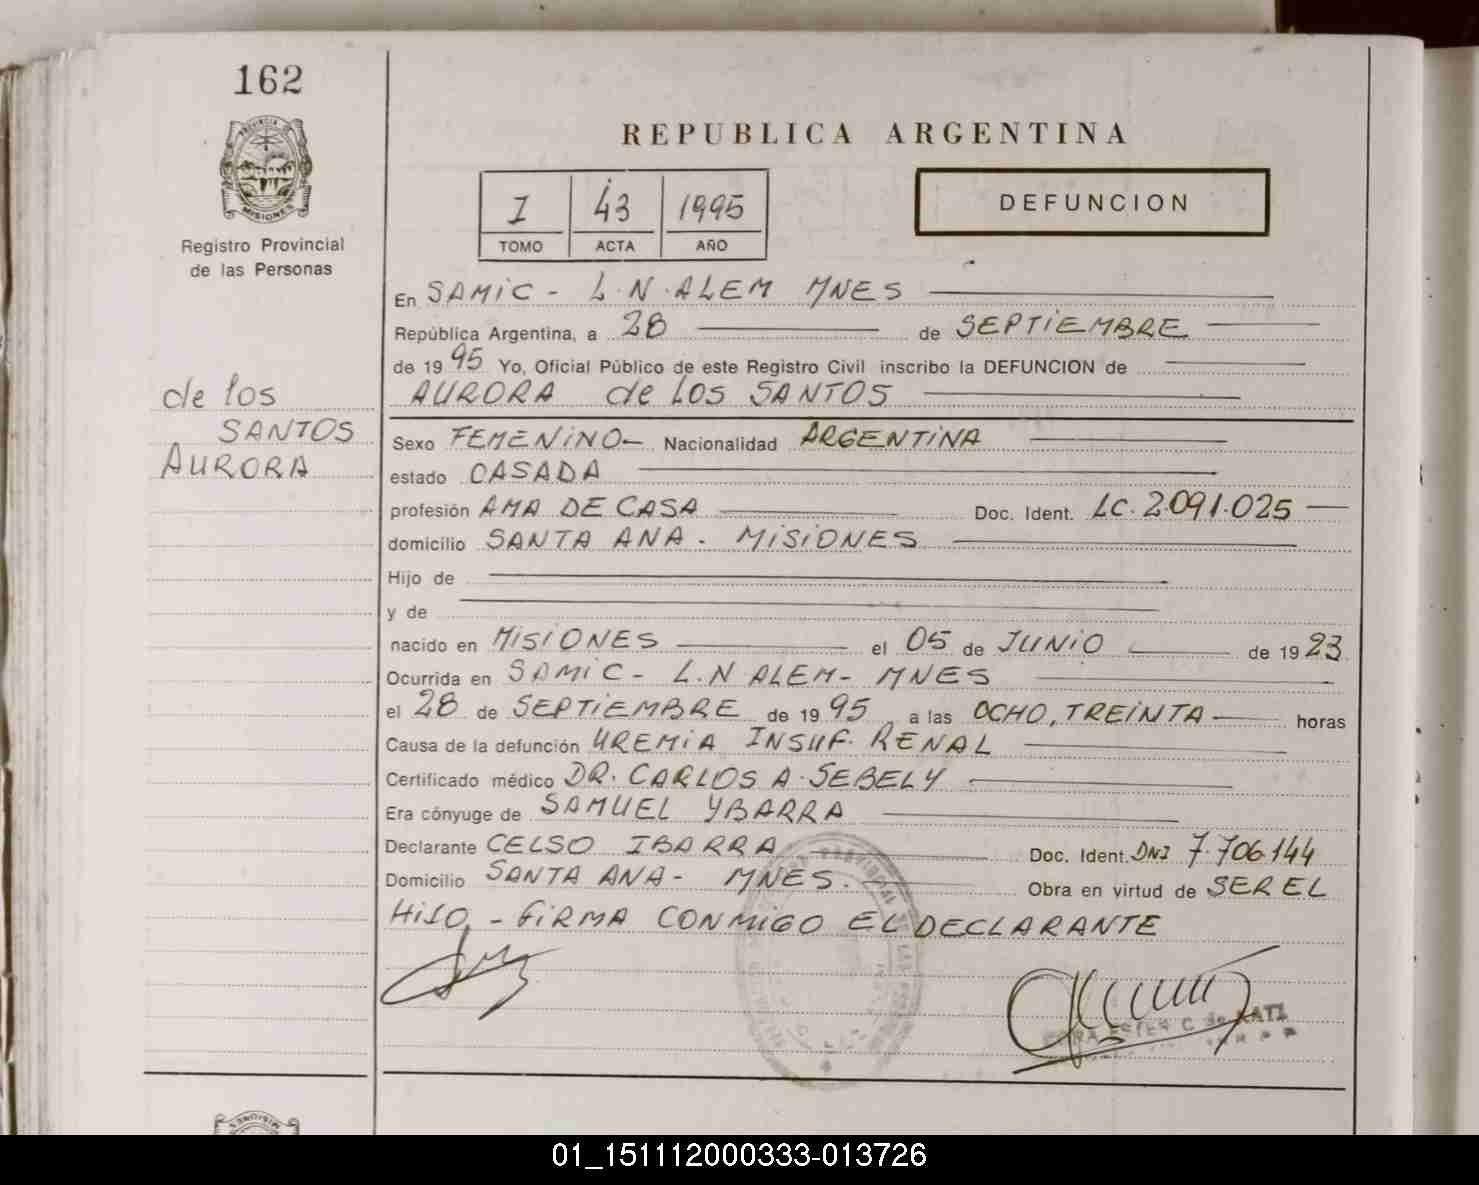 162
PROVINCIA DE
MISIONES
Registro Provincial
de las Personas
de los
SANTOS
AURORA
REPUBLICA ARGENTINA
I 43 1995
TOMO ACTA AÑO
DEFUNCION
En SAMIC - L.N.ALEM MNES
República Argentina, a 28 de SEPTIEMBRE
de 1995 Yo, Oficial Público de este Registro Civil inscribo la DEFUNCION de
AURORA de LOS SANTOS
Sexo FEMENINO Nacionalidad ARGENTINA
estado CASADA
profesión AMA DE CASA Doc. Ident. LC. 2.091.025
domicilio SANTA ANA - MISIONES
Hijo de
y de
nacido en MISIONES el 05 de JUNIO de 1923
Ocurrida en SAMIC - L.N ALEM - MNES
el 28 de SEPTIEMBRE de 1995 a las OCHO, TREINTA horas
Causa de la defunción UREMIA INSUF. RENAL
Certificado médico DR. CARLOS A. SEBELY
Era cónyuge de SAMUEL YBARRA
Declarante CELSO IBARRA Doc. Ident. DNI 7.706.144
Domicilio SANTA ANA - MNES. Obra en virtud de SER EL
HIJO - FIRMA CONMIGO EL DECLARANTE
ESTER C. de KATZ
MISIONES
01_151112000333-013726